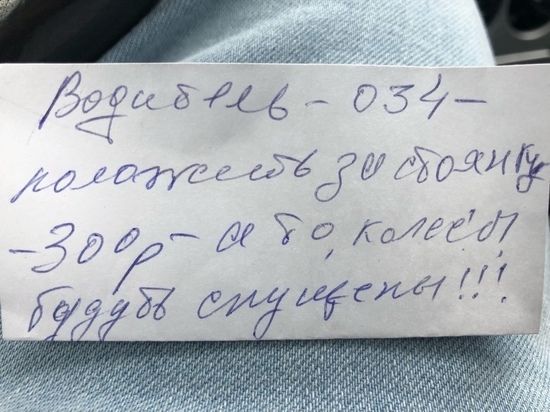 Водитель - 034 -
положеть за стоянку
- 300р - а то, колесы
будуть спущены!!!